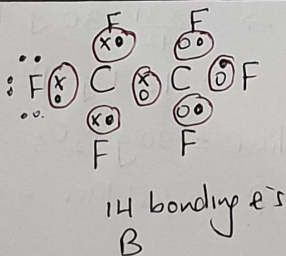 F F
F C C F
F F
14 bonding e's
B